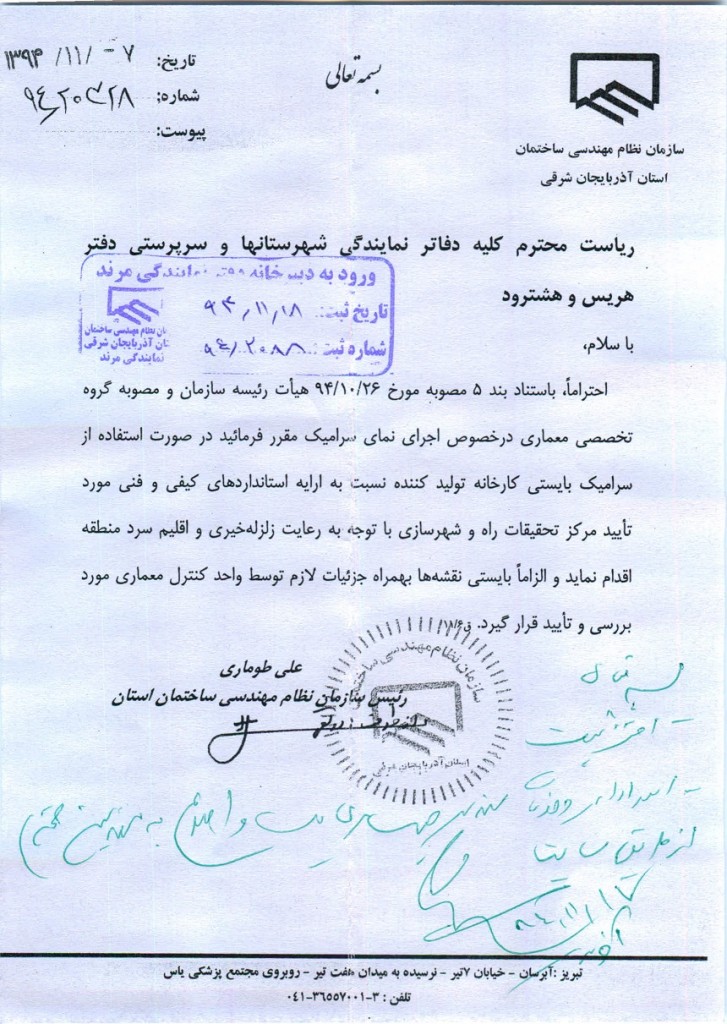 بسمه تعالی
سازمان نظام مهندسی ساختمان
استان آذربایجان شرقی
تاریخ: ۷ - /۱۱/ ۱۳۹۴
شماره: ۹۴/۲۰۳۲۸
پیوست:
ریاست محترم کلیه دفاتر نمایندگی شهرستانها و سرپرستی دفتر
هریس و هشترود
ورود به دبیرخانه دفتر نمایندگی مرند
تاریخ ثبت: ۹۴,۱۱,۱۸
شماره ثبت:
سازمان نظام مهندسی ساختمان
استان آذربایجان شرقی
نمایندگی مرند
با سلام,
احتراماً، باستناد بند ۵ مصوبه مورخ ۹۴/۱۰/۲۶ هیأت رئیسه سازمان و مصوبه گروه
تخصصی معماری درخصوص اجرای نمای سرامیک مقرر فرمائید در صورت استفاده از
سرامیک بایستی کارخانه تولید کننده نسبت به ارایه استانداردهای کیفی و فنی مورد
تأیید مرکز تحقیقات راه و شهرسازی با توجه به رعایت زلزله‌خیری و اقلیم سرد منطقه
اقدام نماید و الزاماً بایستی نقشه‌ها بهمراه جزئیات لازم توسط واحد کنترل معماری مورد
بررسی و تأیید قرار گیرد.
علی طوماری
رئیس سازمان نظام مهندسی ساختمان استان
سازمان نظام مهندسی ساختمان
استان آذربایجان شرقی
از طریق سایت
تبریز :آبرسان - خیابان ۷تیر - نرسیده به میدان هفت تیر - روبروی مجتمع پزشکی یاس
تلفن : ۳-۳۶۵۵۷۰۰۱-۰۴۱